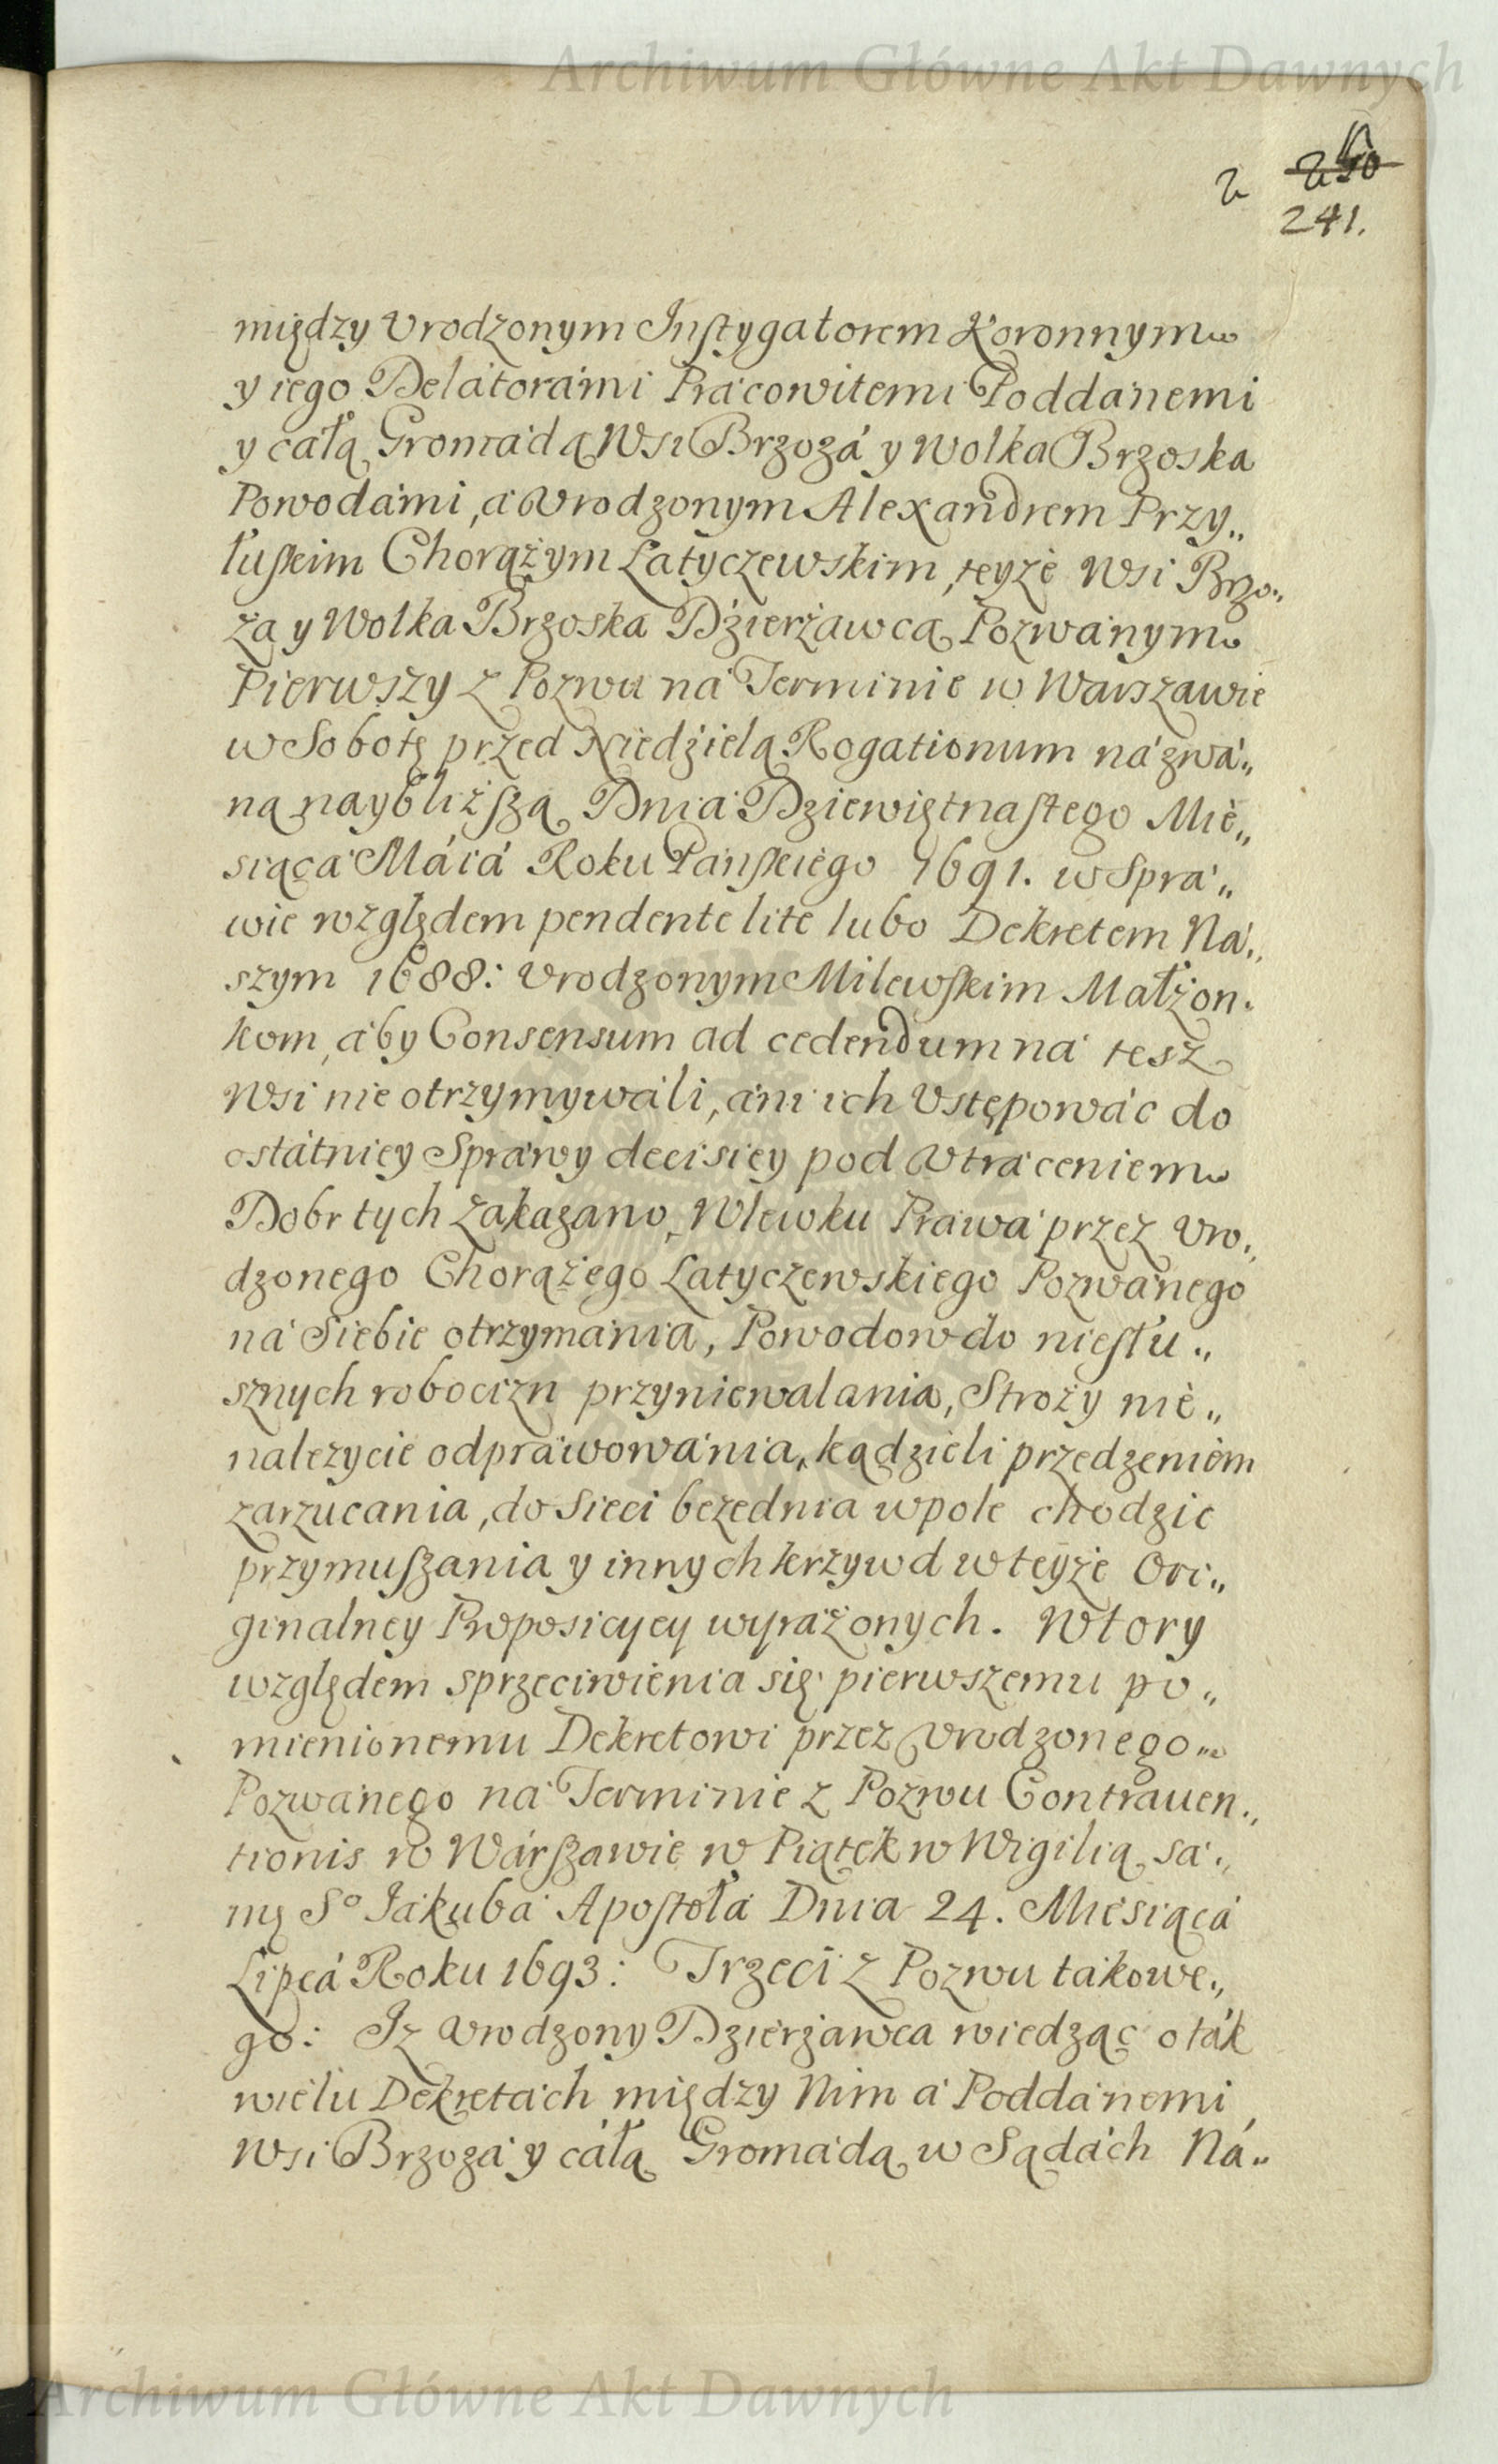 Archiwum Główne Akt Dawnych
2 250
241.
między Vrodzonym Instygatorem Koronnym
y iego Delátorámi Prácowitemi Poddánemi
y cáłą Gromádą Wsi Brzozá y Wolka Brzoska
Powodámi, á Vrodzonym Alexandrem Przy„
łuskim Chorążym Latyczewskim, teyże Wsi Brzo„
za y Wolka Brzoska Dźierżawcą Pozwánym
Pierwszy z Pozwu ná Terminie w Warszawie
w Sobotę przed Niedźielą Rogationum názwá„
ną naybliższą Dniá Dziewiętnastego Mie„
siącá Máiá Roku Pánskiego 1691. w Sprá„
wie względem pendente lite lubo Dekretem Ná„
szym 1688: Vrodzonym Milewskim Małżon„
kom, áby Consensum ad cedendum ná tesz
Wsi nie otrzymywáli, áni ich Vstępowáć do
ostátniey Spráwy decisiey pod Vtráceniem
Dobr tych zakazano, Wlewku Práwá przez Vro„
dzonego Chorążego Latyczewskiego Pozwánego
ná Siebie otrzymánia, Powodow do niesłu„
sznych robocizn przyniewalania, Stroży nie„
nalezycie odpráwowánia, kądzieli przędzeniem
zarzucania, do Sieci bezednia w pole chodzic
przymuszania y innych krzywd w teyże Ori„
ginalney Proposicyey wyráżonych. Wtory
względem sprzeciwienia się pierwszemu po„
mienionemu Dekretowi przez Vrodzonego
Pozwánego ná Terminie z Pozwu Contrauen„
tionis w Wárszawie w Piątek w Wigilią sá„
mę So Jákubá Apostołá Dnia 24. Miesiącá
Lipcá Roku 1693: Trzeci z Pozwu tákowe„
go: Jz Vrodzony Dzierżawca wiedząc o ták
wielu Dekretách między Nim á Poddánemi
Wsi Brzozá y cáłą Gromádą w Sądách Ná„
Archiwum Główne Akt Dawnych